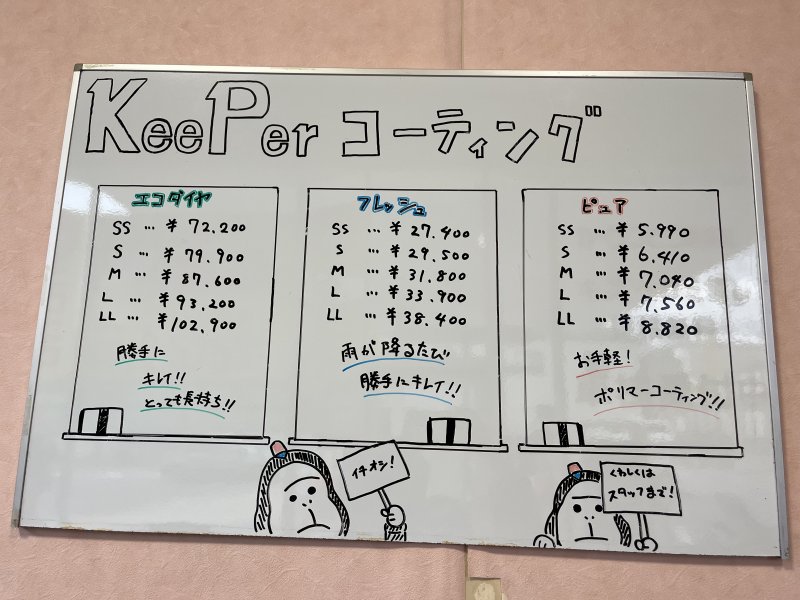 KeePer コーティング
エコダイヤ
SS … ¥ 72,200
S … ¥ 79,900
M … ¥ 87,600
L … ¥ 93,200
LL … ¥ 102,900
勝手に
キレイ!!
とっても長持ち!!
フレッシュ
SS … ¥ 27,400
S … ¥ 29,500
M … ¥ 31,800
L … ¥ 33,900
LL … ¥ 38,400
雨が降るたび
勝手にキレイ!!
ピュア
SS … ¥ 5,990
S … ¥ 6,410
M … ¥ 7,040
L … ¥ 7,560
LL … ¥ 8,820
お手軽!
ポリマーコーティング!!
イチオシ!
くわしくは
スタッフまで!